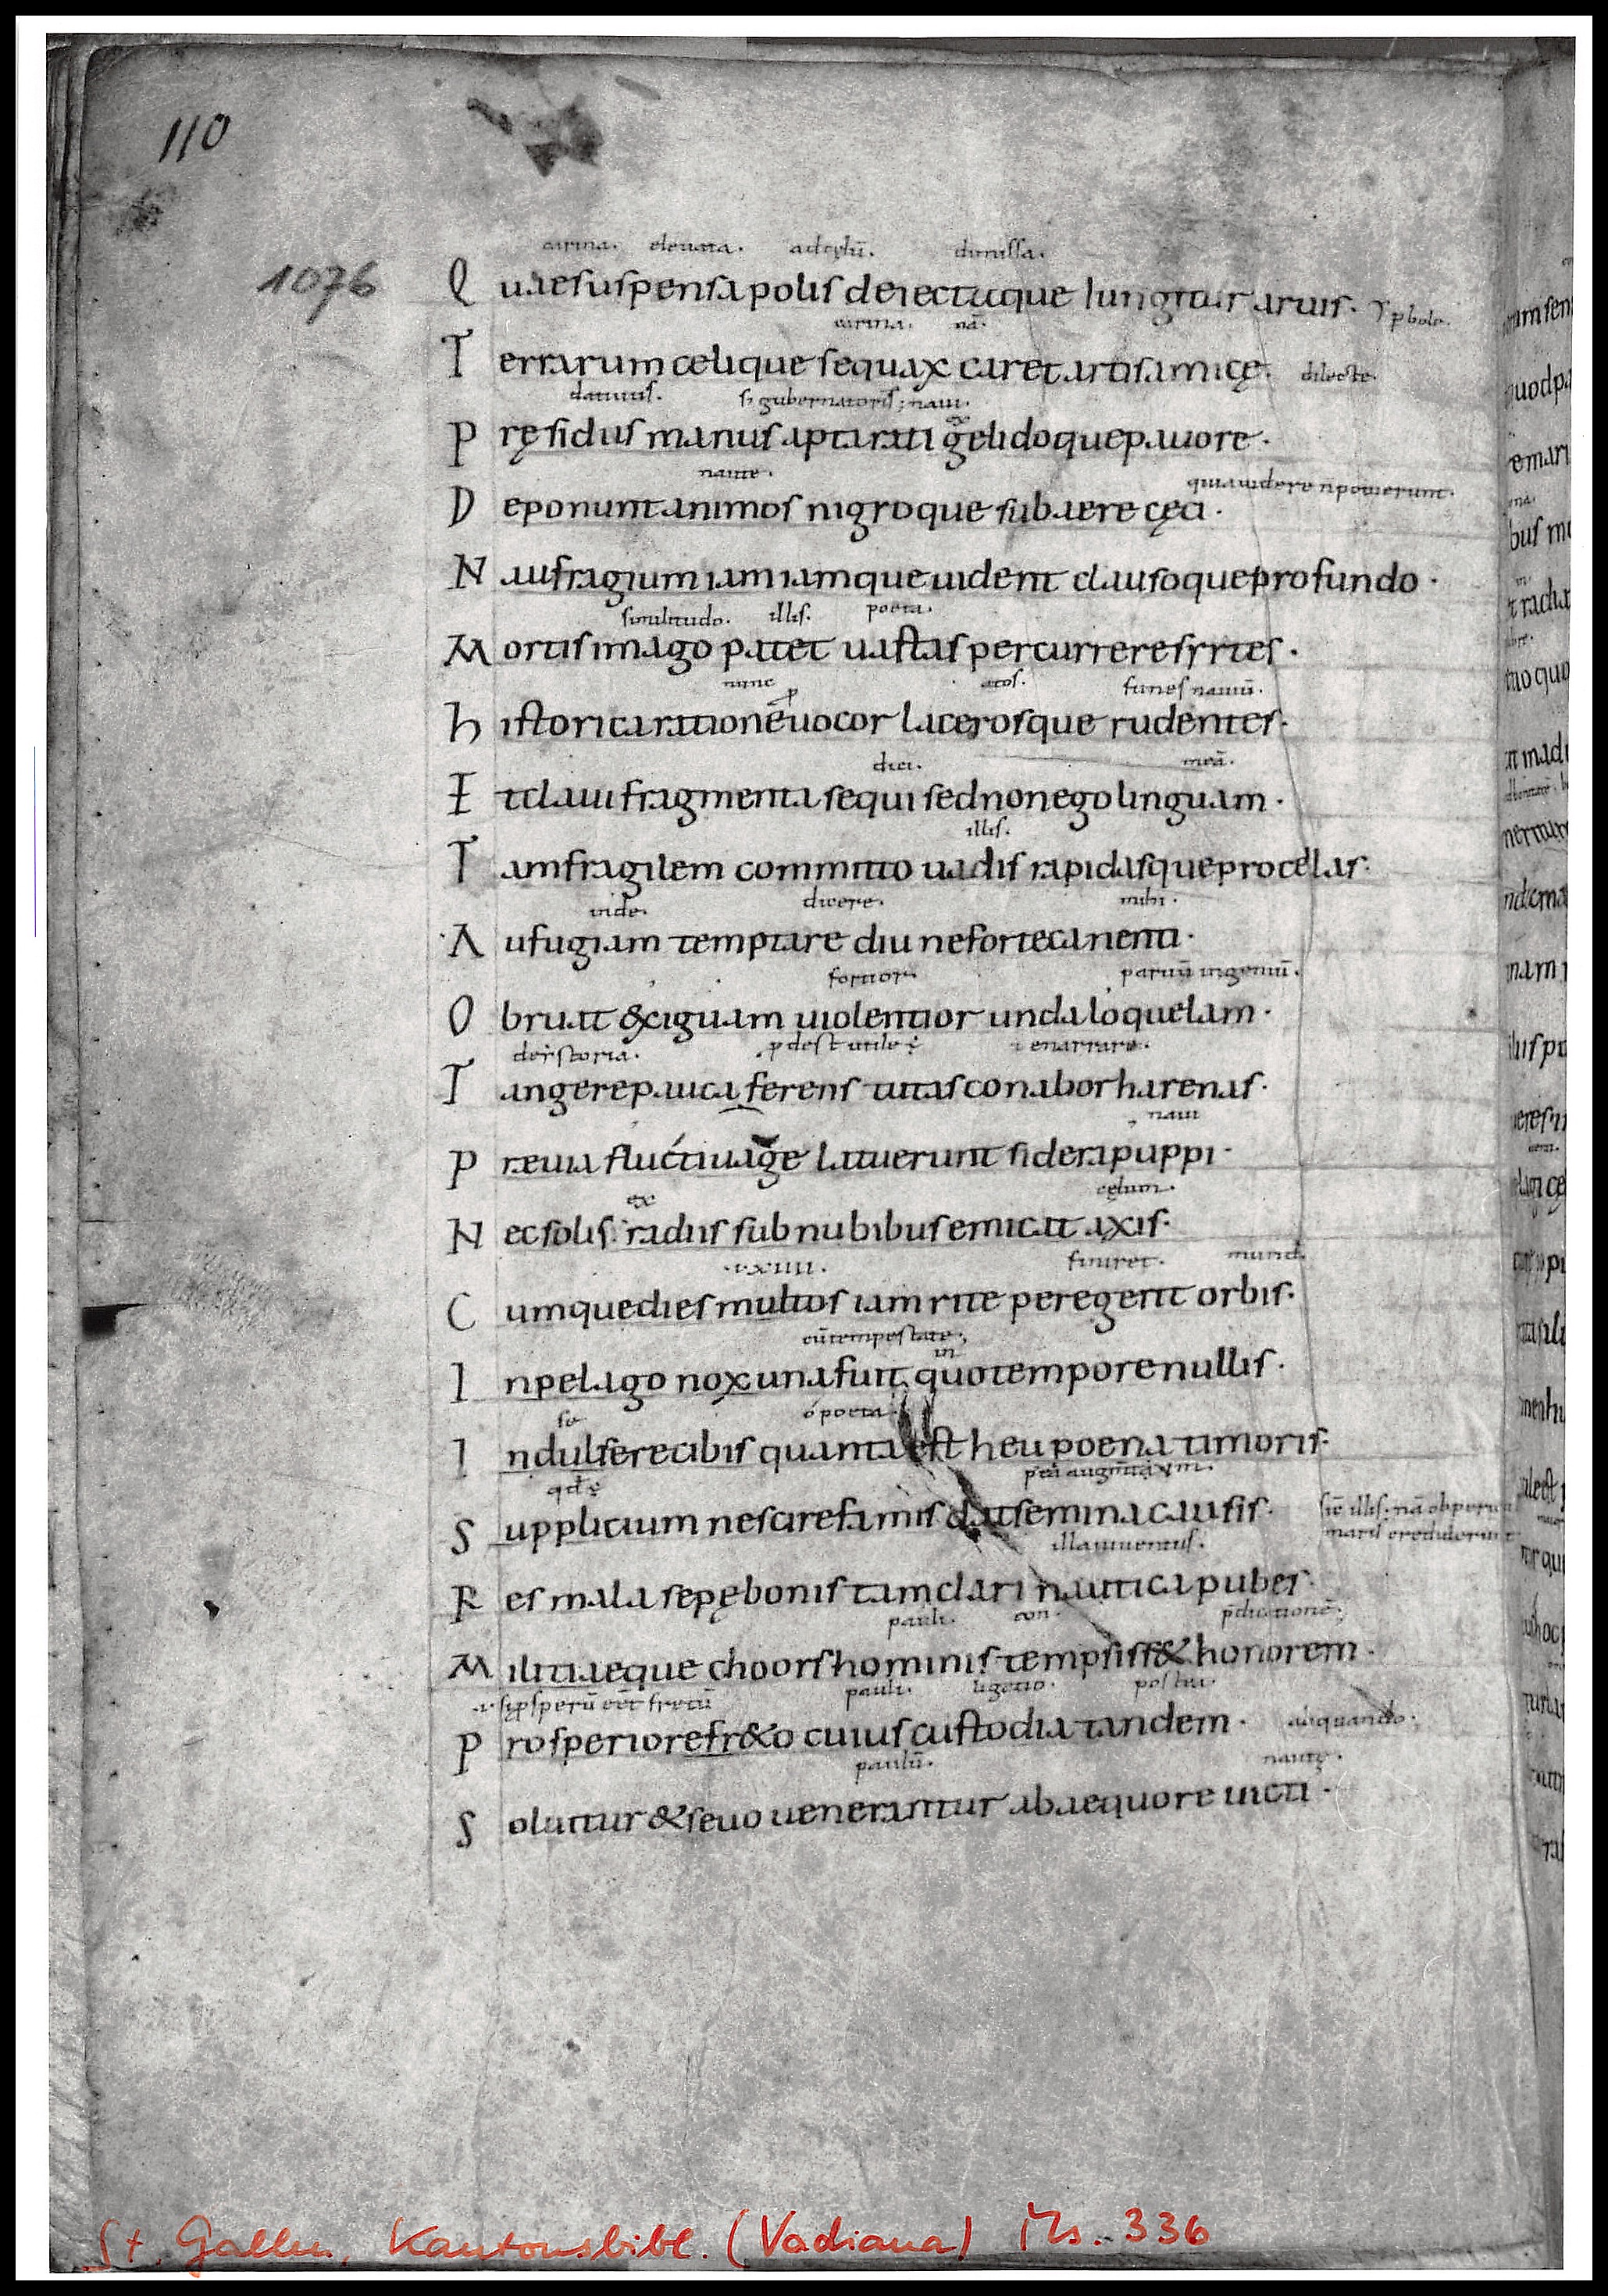 110
carina. eleuata. ad cęlū. dimissa.
1076 Q uae suspensa polis deiectaque iungitur aruis. yꝑbole.
carina. nā.
T errarum celique sequax caret artis amicę. dilectę.
datiuus. s; gubernatoris; naui.
P ręsidus manus aptarati gelidoque pauore.
ex
naute.
quia uidere ñ potuerunt.
D eponunt animos nigroque sub aere cęci.
N aufragium iam iamque uident clausoque profundo.
similitudo. illis. poeta.
M ortis imago patet uastas percurrere syrtes.
nunc actos. funes nauiū.
h istorica ratione uocor lacerosque rudentes.
dici. meā.
E t claui fragmenta sequi sed non ego linguam.
illis.
T am fragilem committo uadis rapidasque procellas.
inde. dicere. mihi.
A ufugiam temptare diu ne forte canenti.
fortior paruū ingeniū.
O bruat & exiguam uiolentior unda loquelam.
de ystoria. ꝓdest utile ę enarrare.
T angere pauca ferens tutas conabor harenas.
naui
P reuia fluctiuage latuerunt sidera puppi.
ex cęlum.
N ec solis radiis sub nubibus emicat axis.
.xiiii. finiret. mundi
C umque dies multos iam rite peregerit orbis.
cū tempestate;
in
I n pelago nox una fuit quo tempore nullis.
o poeta
I ndulsere cibis quanta est heu poena timoris.
qđ ę
S upplicium nescire famis dat semina causis. sic illis: nā ob pericula
maris crediderunt
illa iuuentus.
R es mala sepę bonis tam clari nautica pubes.
pauli. con p̄dicationē;
M ilitiaeque choors hominis tempsiss& honorem.
pauli. ligatio. postea.
P rosperiore fr&o cuius custodia tandem. aliquando.
paulū. nautę.
S oluitur & seuo uenerantur ab aequore uicti.
St. Gallen, Kantonsbibl. (Vadiana) Ms. 336